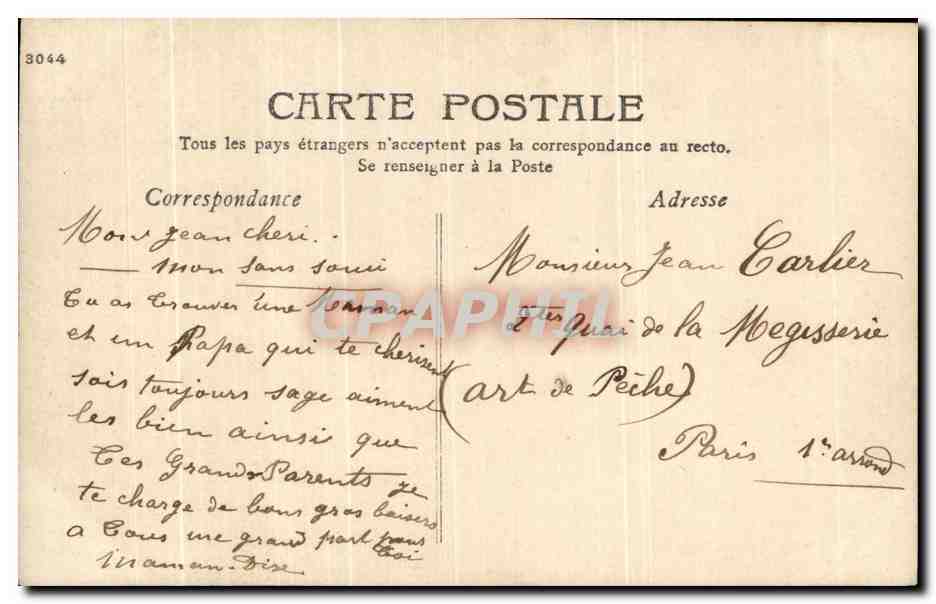 3044
CARTE POSTALE
Tous les pays étrangers n'acceptent pas la correspondance au recto.
Se renseigner à la Poste
Correspondance
Mon Jean cheri..
mon sans souci
Tu as trouver une Maman
et un Papa qui te cherisent
sois toujours sage aiment
les bien ainsi que
tes Grands Parents je
te charge de bons gros baisers
a tous une grand part pour
toi
maman-Dise
Adresse
Monsieur Jean Carlier
2ter Quai de la Megisserie
(art de Pêche)
Paris 1er arrond
CPAPHIL